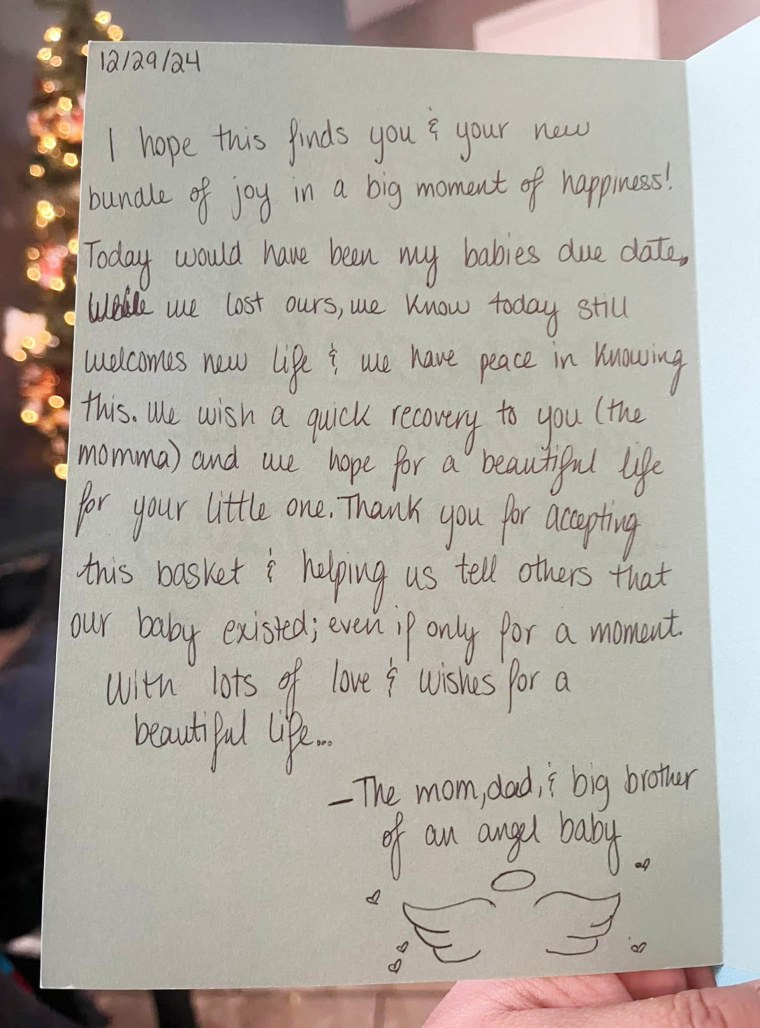 12/29/24
I hope this finds you & your new
bundle of joy in a big moment of happiness!
Today would have been my babies due date.
While we lost ours, we know today still
welcomes new life & we have peace in knowing
this. We wish a quick recovery to you (the
momma) and we hope for a beautiful life
for your little one. Thank you for accepting
this basket & helping us tell others that
our baby existed; even if only for a moment.
With lots of love & wishes for a
beautiful life...
—The mom, dad, & big brother
of an angel baby